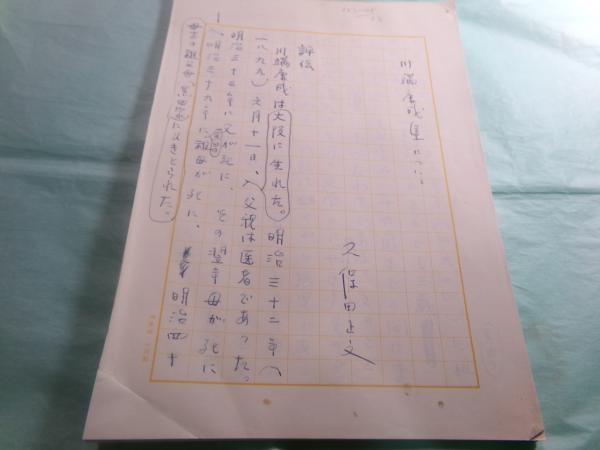 川端康成集について
久保田正文
評伝
川端康成は大阪に生れた。明治三十二年(
一八九九)六月十一日、父親は医者であった。
明治三十三年に父が死に、その翌年母が死に
、明治三十九年に祖母が死に、明治四十
に引きとられた。